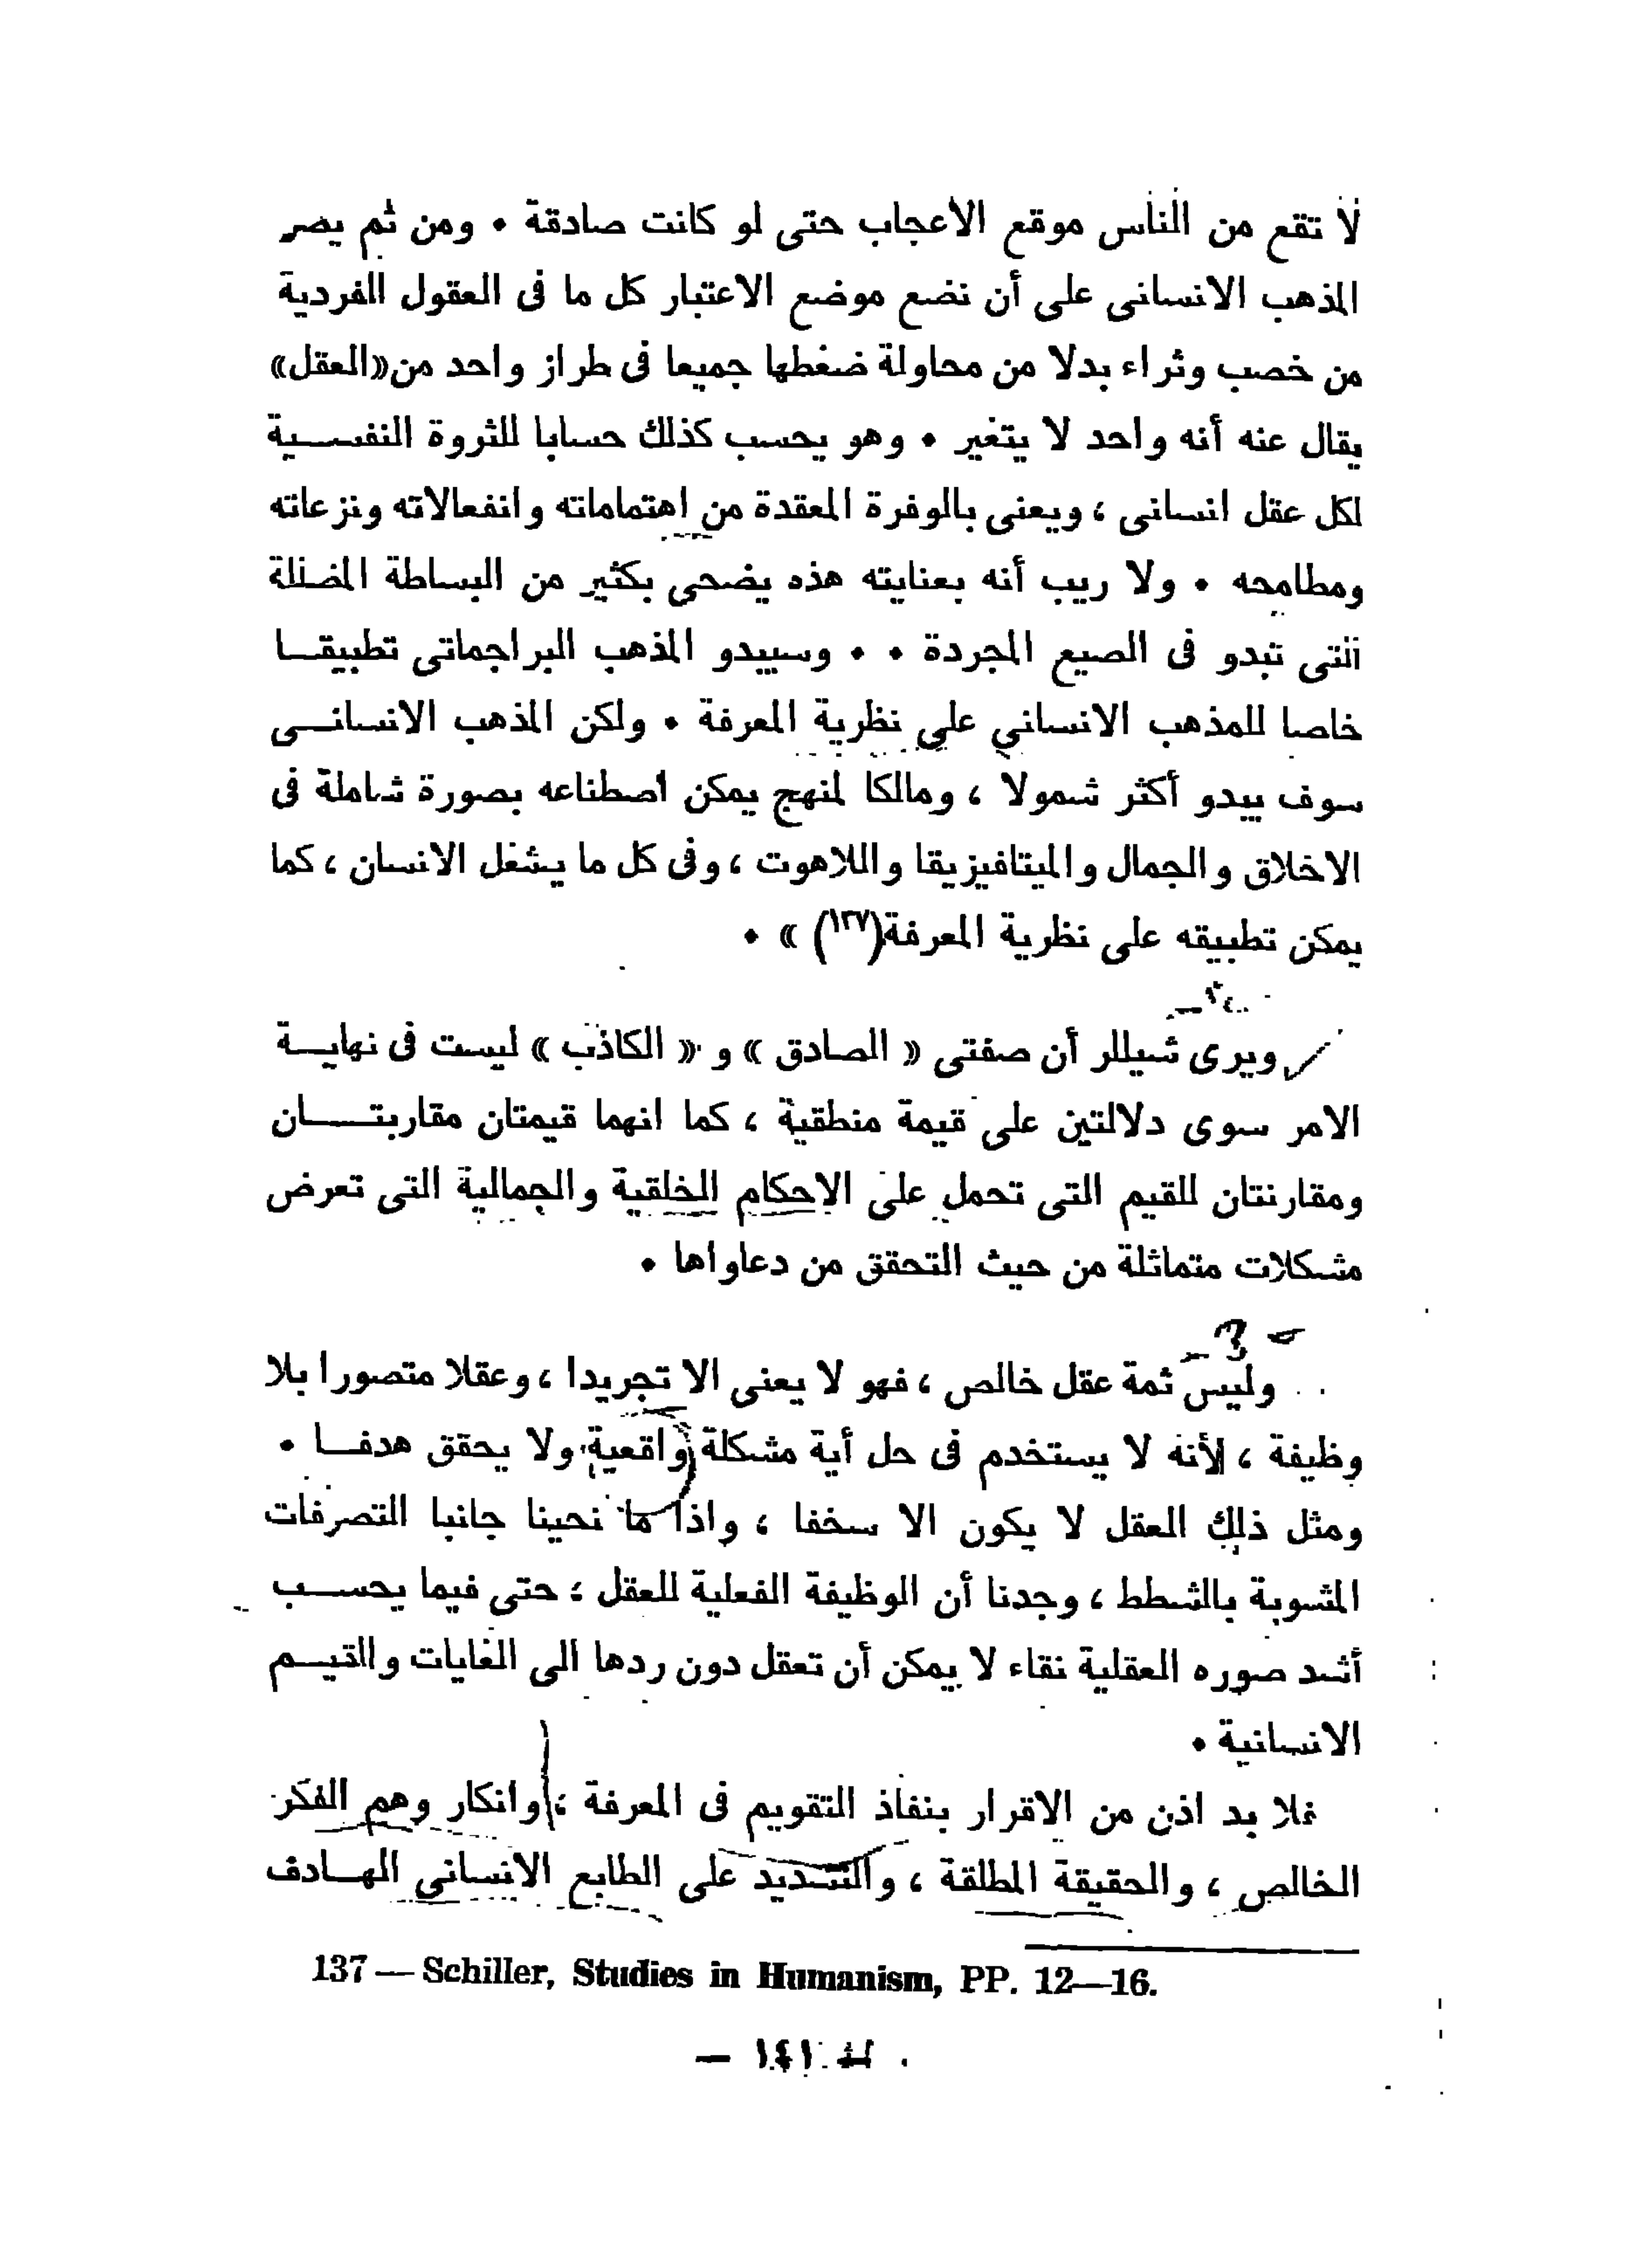 لا تقع من الناس موقع الاعجاب حتى لو كانت صادقة ٠ ومن ثم يصر
المذهب الانسانى على أن نضع موضع الاعتبار كل ما فى العقول الفردية
من خصب وثراء بدلا من محاولة ضغطها جميعا فى طراز واحد من «العقل»
يقال عنه أنه واحد لا يتغير ٠ وهو يحسب كذلك حسابا للثروة النفسية
لكل عقل انسانى ، ويعنى بالوفرة المعقدة من اهتماماته وانفعالاته ونزعاته
ومطامحه ٠ ولا ريب أنه بعنايته هذه يضحى بكثير من البساطة المضللة
التى تبدو فى الصيع المجردة ٠ ٠ وسيبدو المذهب البراجماتى تطبيقا
خاصا للمذهب الانسانى على نظرية المعرفة ٠ ولكن المذهب الانسانى
سوف يبدو أكثر شمولا ، ومالكا لمنهج يمكن اصطناعه بصورة شاملة فى
الاخلاق والجمال والميتافيزيقا واللاهوت ، وفى كل ما يشغل الانسان ، كما
يمكن تطبيقه على نظرية المعرفة(١٣٧) » ٠
ويرى شيللر أن صفتى « الصادق » و « الكاذب » ليست فى نهاية
الامر سوى دلالتين على قيمة منطقية ، كما انهما قيمتان مقاربتان
ومقارنتان للقيم التى تحمل على الاحكام الخلقية والجمالية التى تعرض
مشكلات متماثلة من حيث التحقق من دعاواها ٠
وليس ثمة عقل خالص ، فهو لا يعنى الا تجريدا ، وعقلا متصورا بلا
وظيفة ، لأنه لا يستخدم فى حل أية مشكلة واقعية ولا يحقق هدفا ٠
ومثل ذلك العقل لا يكون الا سخفا ، واذا ما نحينا جانبا التصرفات
المشوبة بالشطط ، وجدنا أن الوظيفة الفعلية للعقل ؛ حتى فيما يحسب
أشد صوره العقلية نقاء لا يمكن أن تعقل دون ردها الى الغايات والقيم
الانسانية ٠
فلا بد اذن من الاقرار بنفاذ التقويم فى المعرفة ؛ وانكار وهم الفكر
الخالص ، والحقيقة المطلقة ، والتشديد على الطابع الانسانى الهادف
137 — Schiller, Studies in Humanism, PP. 12—16.
— ١٤١ —